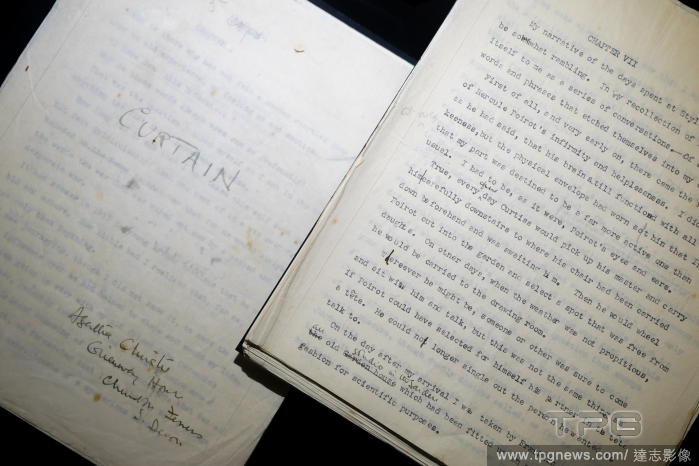 CURTAIN
Agatha Christie
Greenway House
Churston Ferrers
Devon
CHAPTER VII
My narrative of the days spent at Styl
be somewhat rambling. In my recollection of
itself to me as a series of conversations
words and phrases that etched themselves into my
First of all, and very early on, there came the
of Hercule Poirot's infirmity and helplessness. I
as he had said, that his brain still functioned with all
keenness, but the physical envelope had worn
that my part was destined to be a far more active one than
usual. I had to be, as it were, Poirot's eyes and ears.
True, every day Curtiss would pick up his master and carry
him carefully downstairs to where his chair had been carried
down beforehand and was awaiting him. Then he would wheel
Poirot out into the garden and select a spot that was free from
draughts. On other days, when the weather was not propitious,
he would be carried to the drawing room.
Wherever he might be, someone or other was sure to come
and sit with him and talk, but this was not the same thing
if Poirot could have selected for himself his
a tête. He could no longer single out the person he wanted
talk to.
On the day after my arrival I was taken by
an
the old garden house which had been fitted
fashion for scientific purposes.
TPG
www.tpgnews.com/ 達志影像